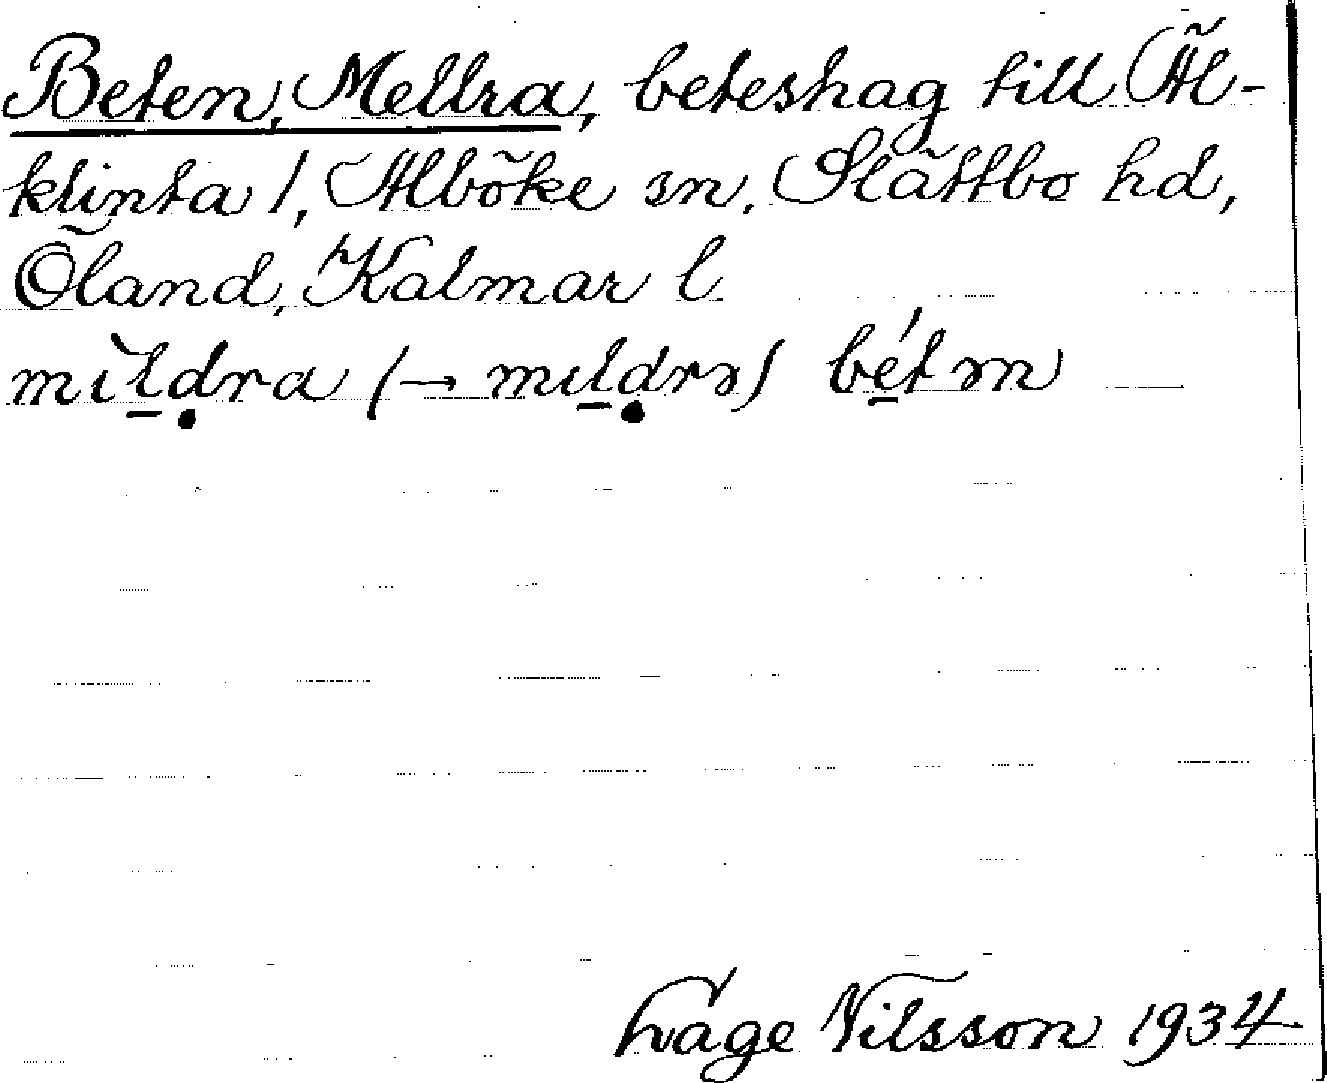 Beten, Mellra, beteshag till Äl-
klinta 1, Alböke sn, Slättbo hd,
Öland, Kalmar l.
mìldra (→ mıldrə) bétn
Lage Nilsson 1934